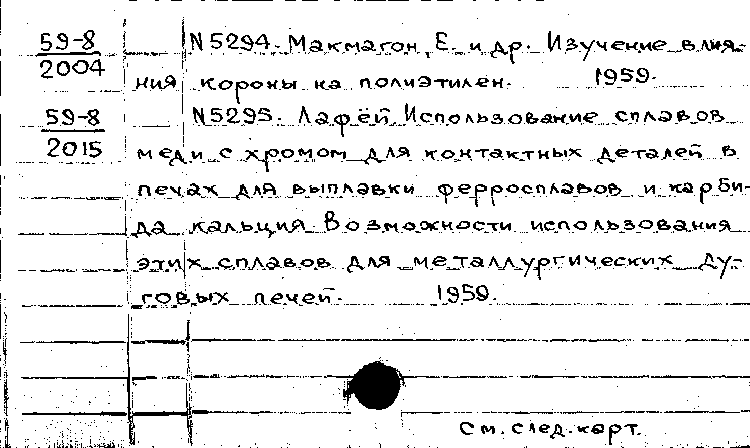 59-8 N5294. Макмагон, Е. и др. Изучение влия-
2004 ния короны на полиэтилен. 1959.
59-8 N5295. Лафёй Использование сплавов
2015 меди с хромом для контактных деталей в
печах для выплавки ферросплавов и карби-
да кальция Возможности использования
этих сплавов для металлургических ду-
говых печей. 1959.
См. след. карт.